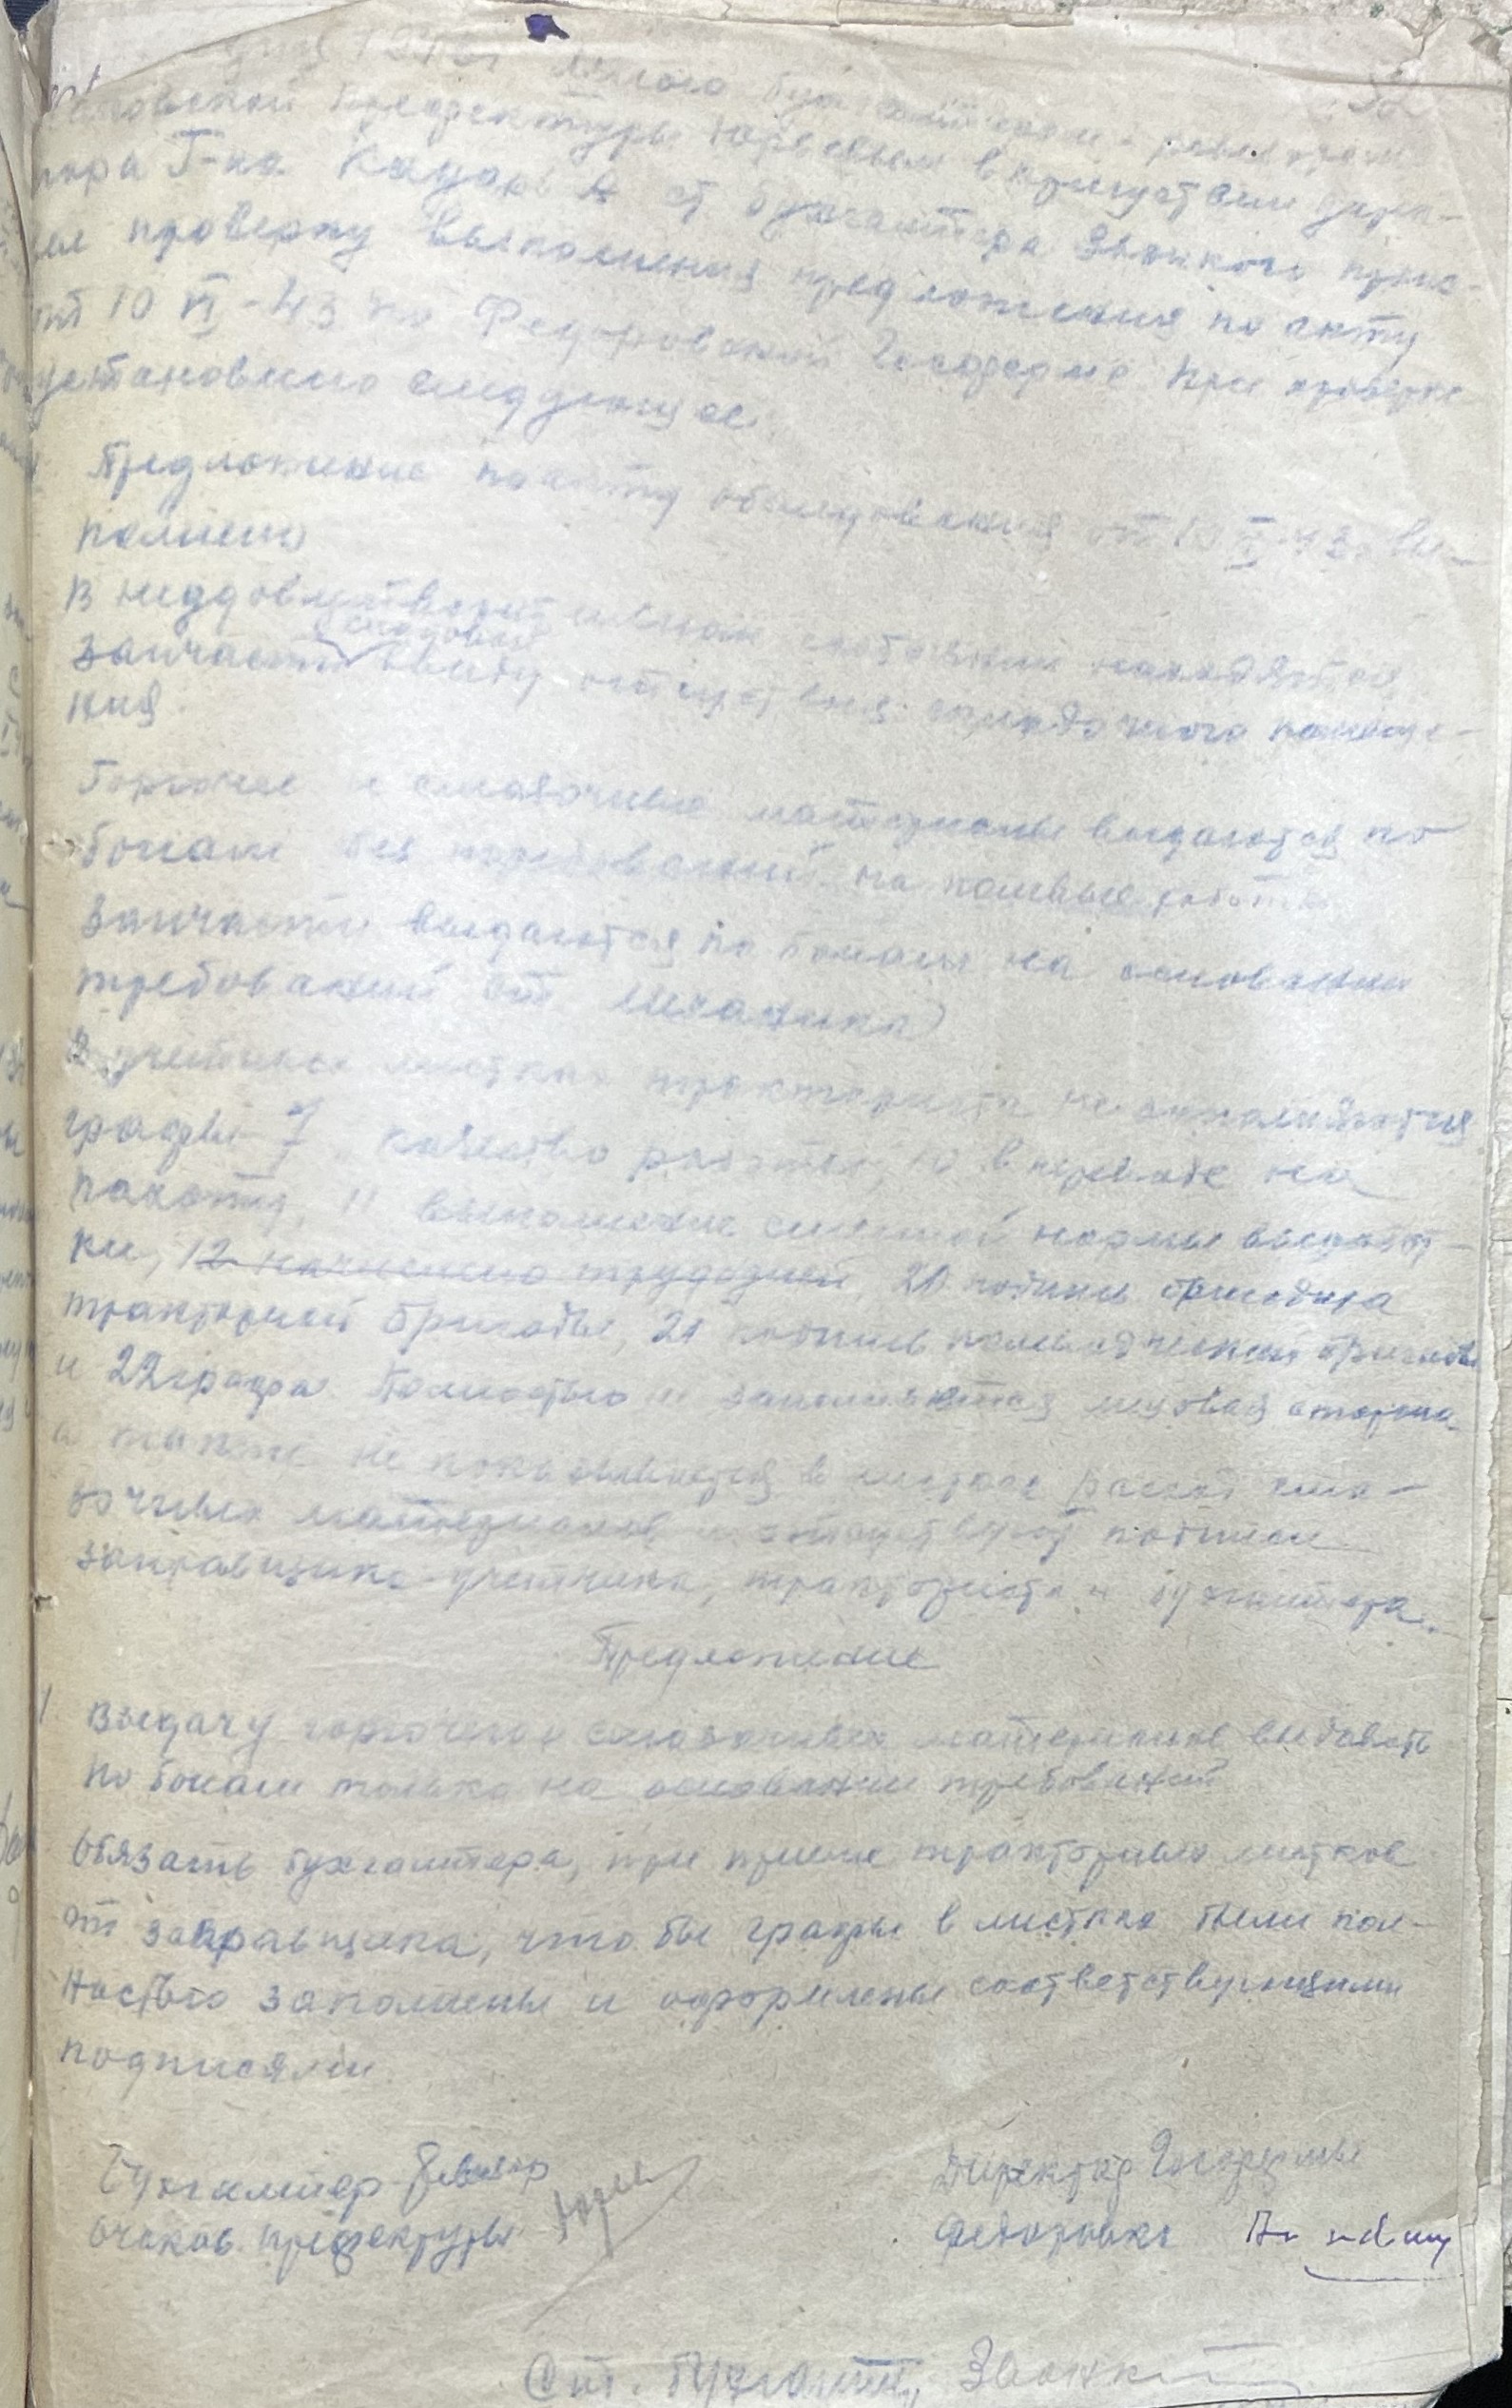 1943 г. мною бухгалтером-ревизором
Очаковской Префектуры Юрьевым в присутствии дирек-
тора Г-на ст. бухгалтера произ-
вел проверку выполнения предложения по акту
от 10 VI-43 по Федоровской Госферме При проверке
установлено следующее.
Предложение по акту обследования от 10 VI-43г. вы-
полнено
В неудовлетворительном состоянии находятся
складовая
запчасти ввиду отсутствия складочного помеще-
ния.
Горючее и смазочные материалы выдаются по
бонам без требований на полевые работы
Запчасти выдаются по бонам на основании
требований от механика
В учетных листках тракториста не заполняются
графы 7 качество работы, 10 в переводе на
пахоту, 11 выполнение сменной нормы выработ-
ки, 12 начислено трудодней, 20 подпись бригадира
тракторной бригады, 21 подпись полеводческой бригады
и 22 графа. Полностью заполняется лицевая сторона
а также не показывается в листке расход сма-
зочных материалов и отсутствуют подписи
заправщика-учетчика, тракториста и бухгалтера.
Предложение
1. Выдачу горючего и смазочных материалов выдавать
по бонам только на основании требований
Обязать бухгалтера, при приеме тракторных листков
от заправщика, что бы графы в листках были пол-
ностью заполнены и оформлены соответствующими
подписями.
Бухгалтер-Ревизор
Очаков. префектуры Юрьев
Директор Госфермы
Федоровка
Ст. Бухгалт.